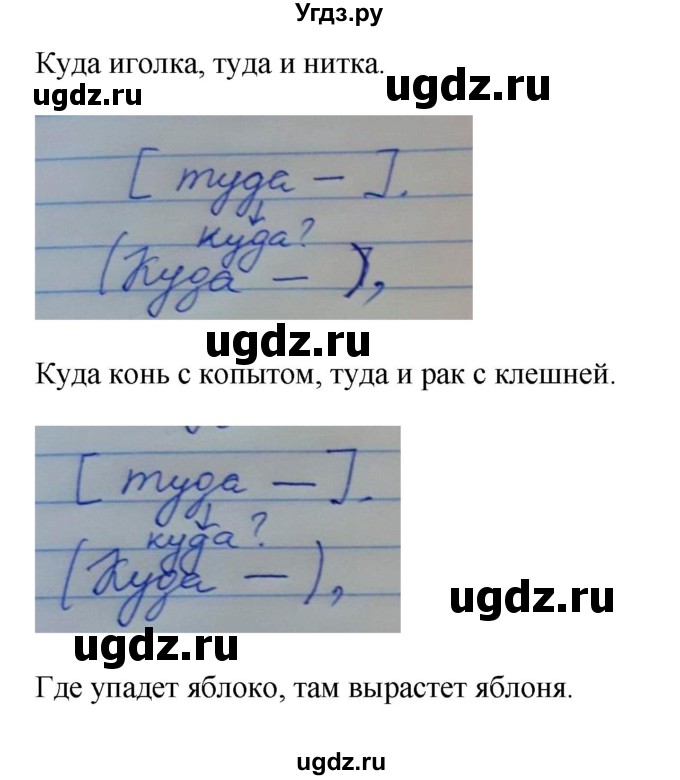 Угдз.ру
Куда иголка, туда и нитка.
ugdz.ru
ugdz.ru
[ туда – ].
куда?
(Куда – ),
ugdz.ru
Куда конь с копытом, туда и рак с клешней.
[ туда – ].
куда?
(Куда – ),
ugdz.ru
ugdz.ru
Где упадет яблоко, там вырастет яблоня.
ugdz.ru